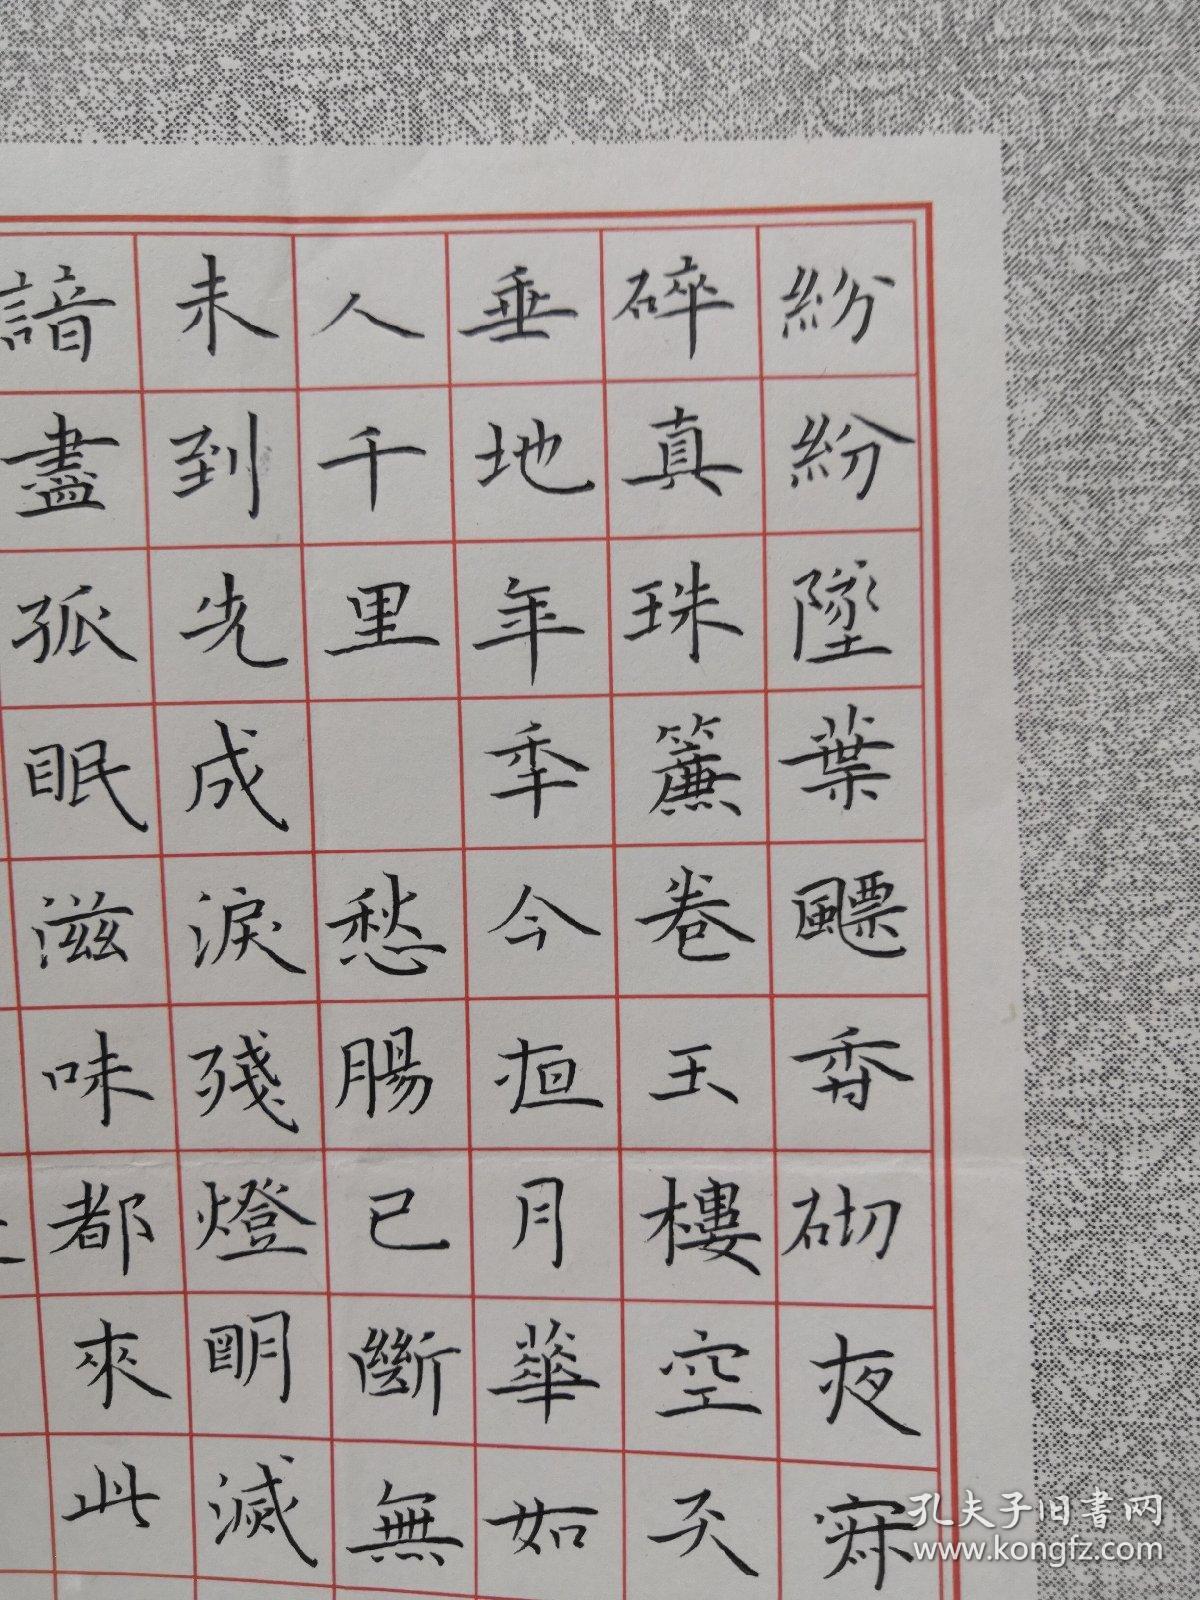 紛紛墜葉飄香砌夜寂
碎真珠簾卷玉樓空天
垂地年年今亱月華如
人千里　愁腸已斷無
未到先成淚殘燈明滅
諳盡孤眠滋味都來此
孔夫子旧書网
www.kongfz.com